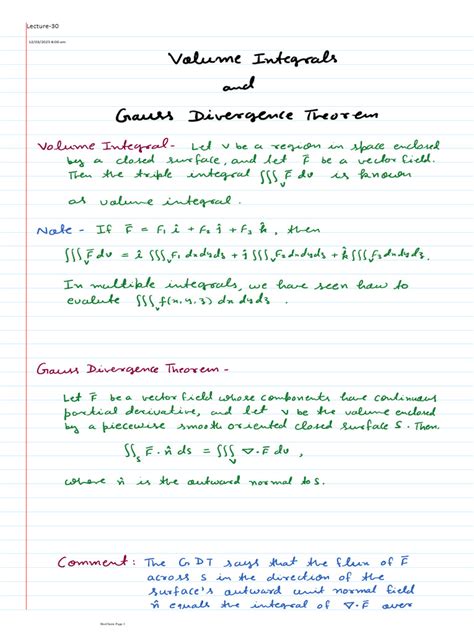 Lecture-30
Volume Integrals
and
Gauss Divergence Theorem
Volume Integral - Let V be a region in space enclosed
by a closed surface, and let F̄ be a vector field.
Then the triple integral ∭_V F̄ dv is known
as volume integral.
Note - If F̄ = F₁ î + F₂ ĵ + F₃ k̂, then
∭_V F̄ dv = î ∭_V F₁ dxdydz + ĵ ∭_V F₂ dxdydz + k̂ ∭_V F₃ dxdydz.
In multiple integrals, we have seen how to
evalute ∭_V f(x,y,z) dx dy dz .
Gauss Divergence Theorem -
Let F̄ be a vector field whose components have continuous
partial derivative, and let V be the volume enclosed
by a piecewise smooth oriented closed surface S. Then
∬_S F̄ · n̂ ds = ∭_V ∇ · F̄ dv ,
where n̂ is the outward normal to S.
Comment: The GDT says that the flux of F̄
across S in the direction of the
surface's outward unit normal field
n̂ equals the integral of ∇ · F̄ over